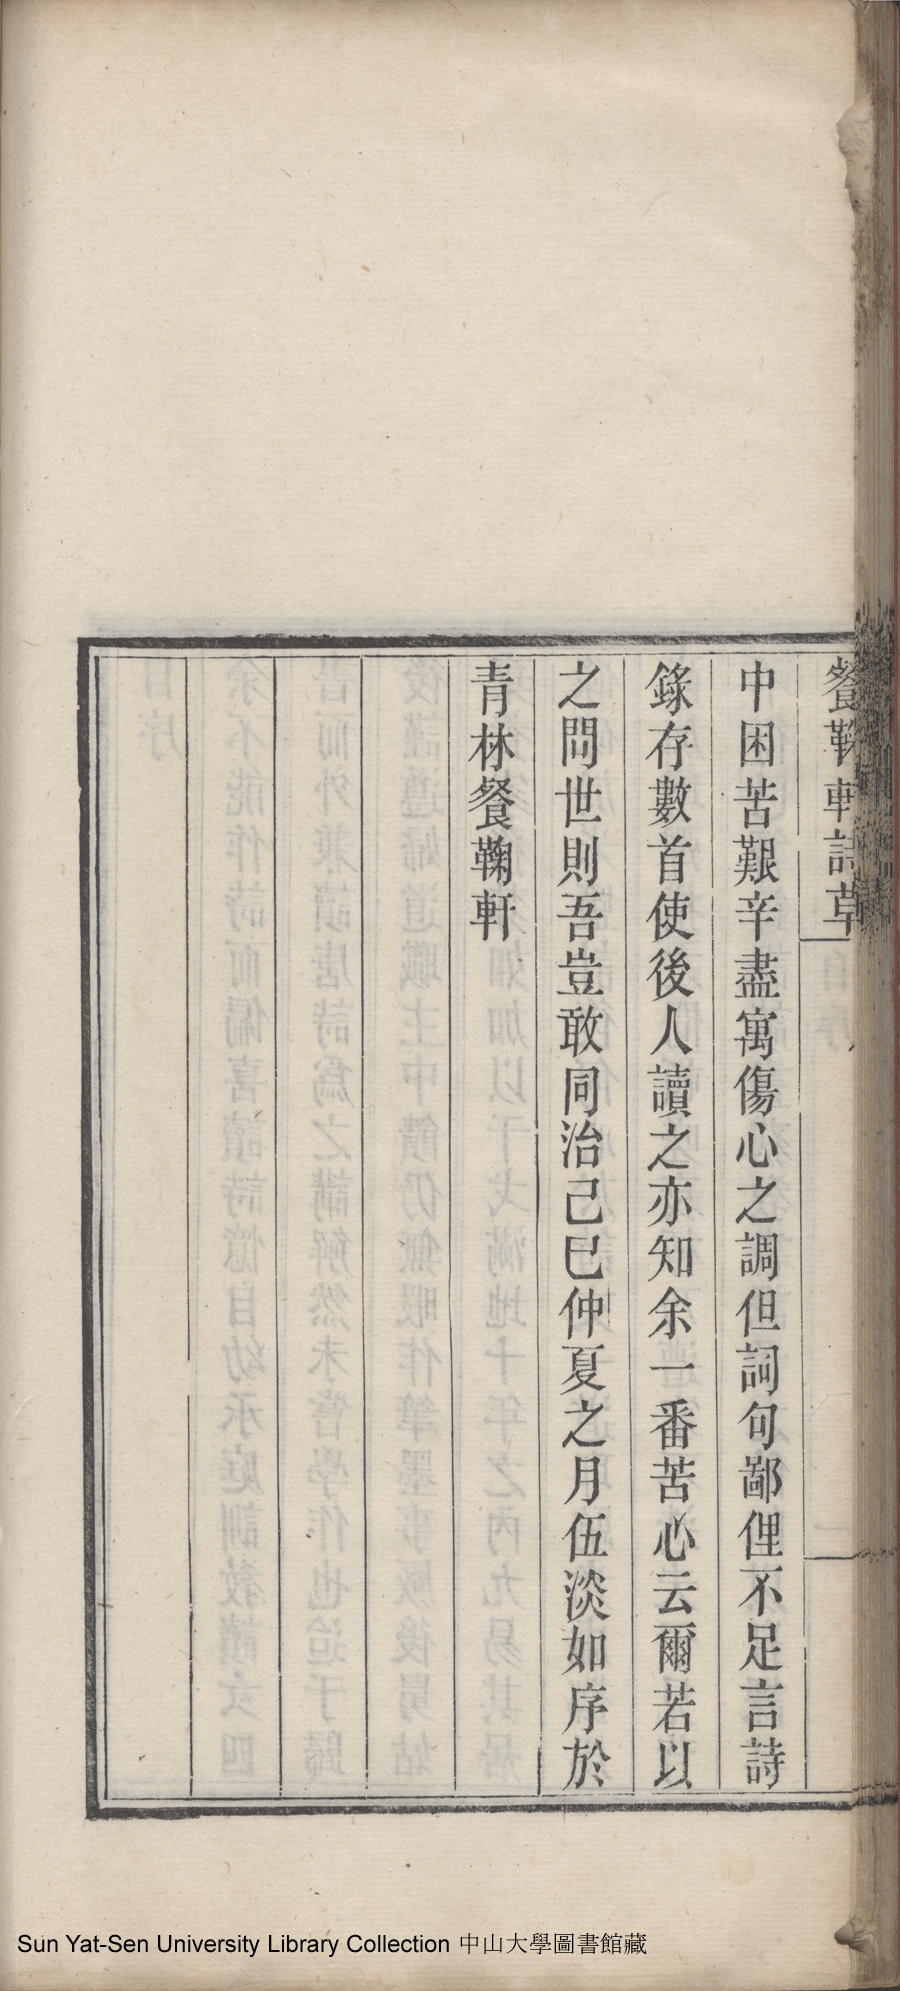 餐鞠軒詩草
中困苦艱辛盡寓傷心之調但詞句鄙俚不足言詩
錄存數首使後人讀之亦知余一番苦心云爾若以
之問世則吾豈敢同治己巳仲夏之月伍淡如序於
青林餐鞠軒
Sun Yat-Sen University Library Collection 中山大學圖書館藏